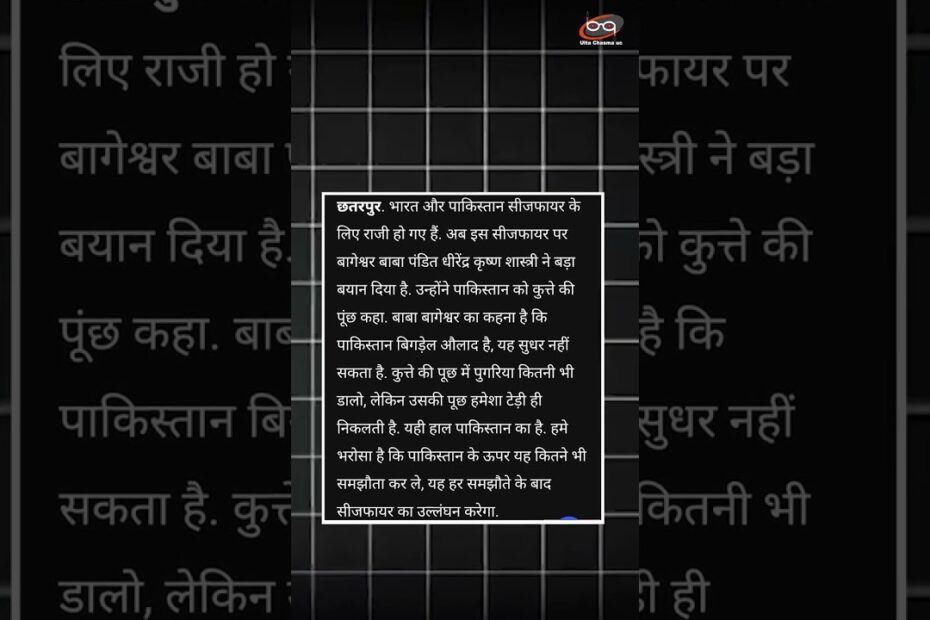 Ulta Chasma uc
छतरपुर. भारत और पाकिस्तान सीजफायर के
लिए राजी हो गए हैं. अब इस सीजफायर पर
बागेश्वर बाबा पंडित धीरेंद्र कृष्ण शास्त्री ने बड़ा
बयान दिया है. उन्होंने पाकिस्तान को कुत्ते की
पूंछ कहा. बाबा बागेश्वर का कहना है कि
पाकिस्तान बिगड़ेल औलाद है, यह सुधर नहीं
सकता है. कुत्ते की पूछ में पुगरिया कितनी भी
डालो, लेकिन उसकी पूछ हमेशा टेड़ी ही
निकलती है. यही हाल पाकिस्तान का है. हमे
भरोसा है कि पाकिस्तान के ऊपर यह कितने भी
समझौता कर ले, यह हर समझौते के बाद
सीजफायर का उल्लंघन करेगा.
लिए राजी हो
बागेश्वर बाबा
बयान दिया है.
पूंछ कहा. बाब
पाकिस्तान बि
सकता है. कुत्ते
डालो, लेकिन
फायर पर
स्त्री ने बड़ा
को कुत्ते की
है कि
सुधर नहीं
कितनी भी
ही ही